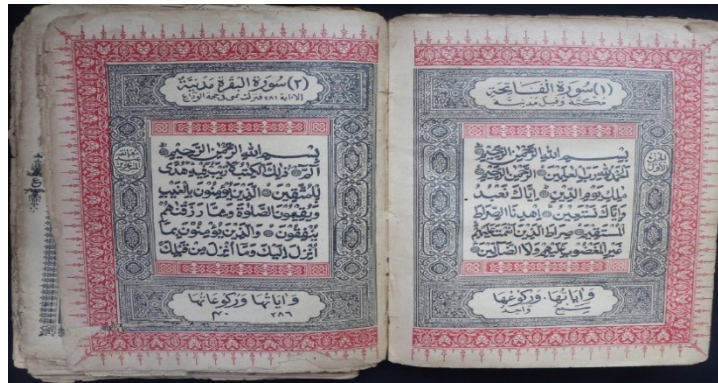 (١) سورة الفاتحة
مكية وقيل مدنية
بسم الله الرحمن الرحيم
الحمد لله رب العلمين الرحمن الرحيم
ملك يوم الدين إياك نعبد
وإياك نستعين اهدنا الصراط
المستقيم صراط الذين أنعمت عليهم
غير المغضوب عليهم ولا الضالين
وآياتها وركوعها
سبع واحد
(٢) سورة البقرة مدنية
بسم الله الرحمن الرحيم
الم ذلك الكتب لا ريب فيه هدى
للمتقين الذين يؤمنون بالغيب
ويقيمون الصلوة ومما رزقنهم
ينفقون والذين يؤمنون بما
أنزل إليك وما أنزل من قبلك
وآياتها وركوعاتها
٢٨٦ ٤٠